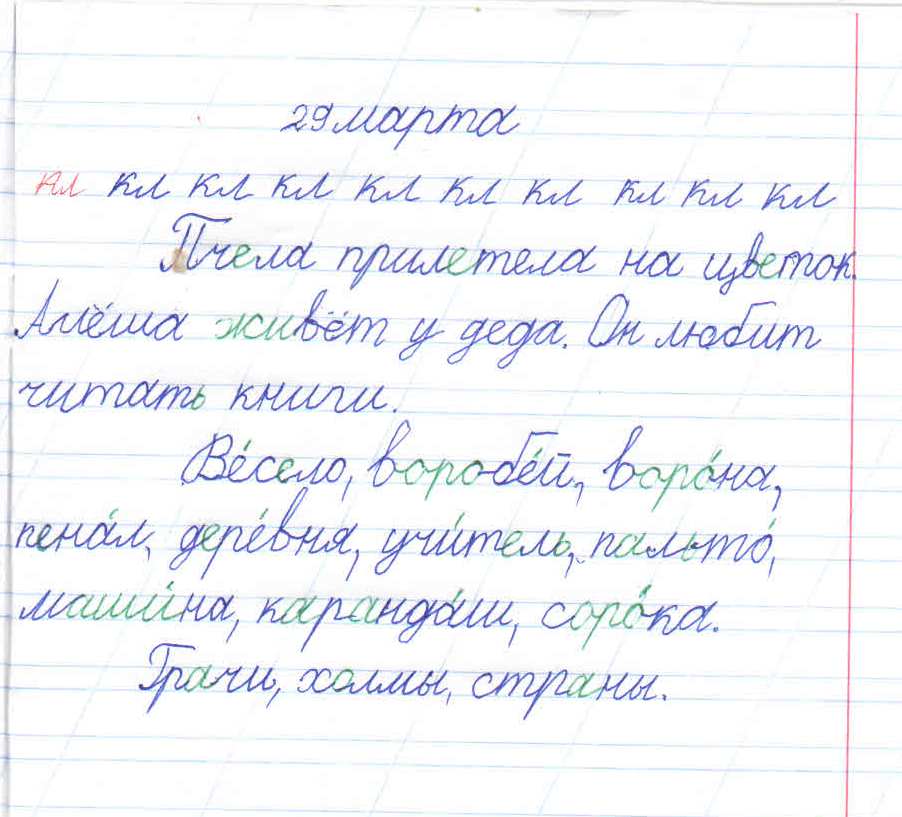 29 марта
кл кл кл кл кл кл кл кл кл кл
Пчела прилетела на цветок.
Алёша живёт у деда. Он любит
читать книги.
Ве́село, воробе́й, воро́на,
пена́л, дере́вня, учи́тель, пальто́,
маши́на, каранда́ш, соро́ка.
Грачи, холмы, страны.